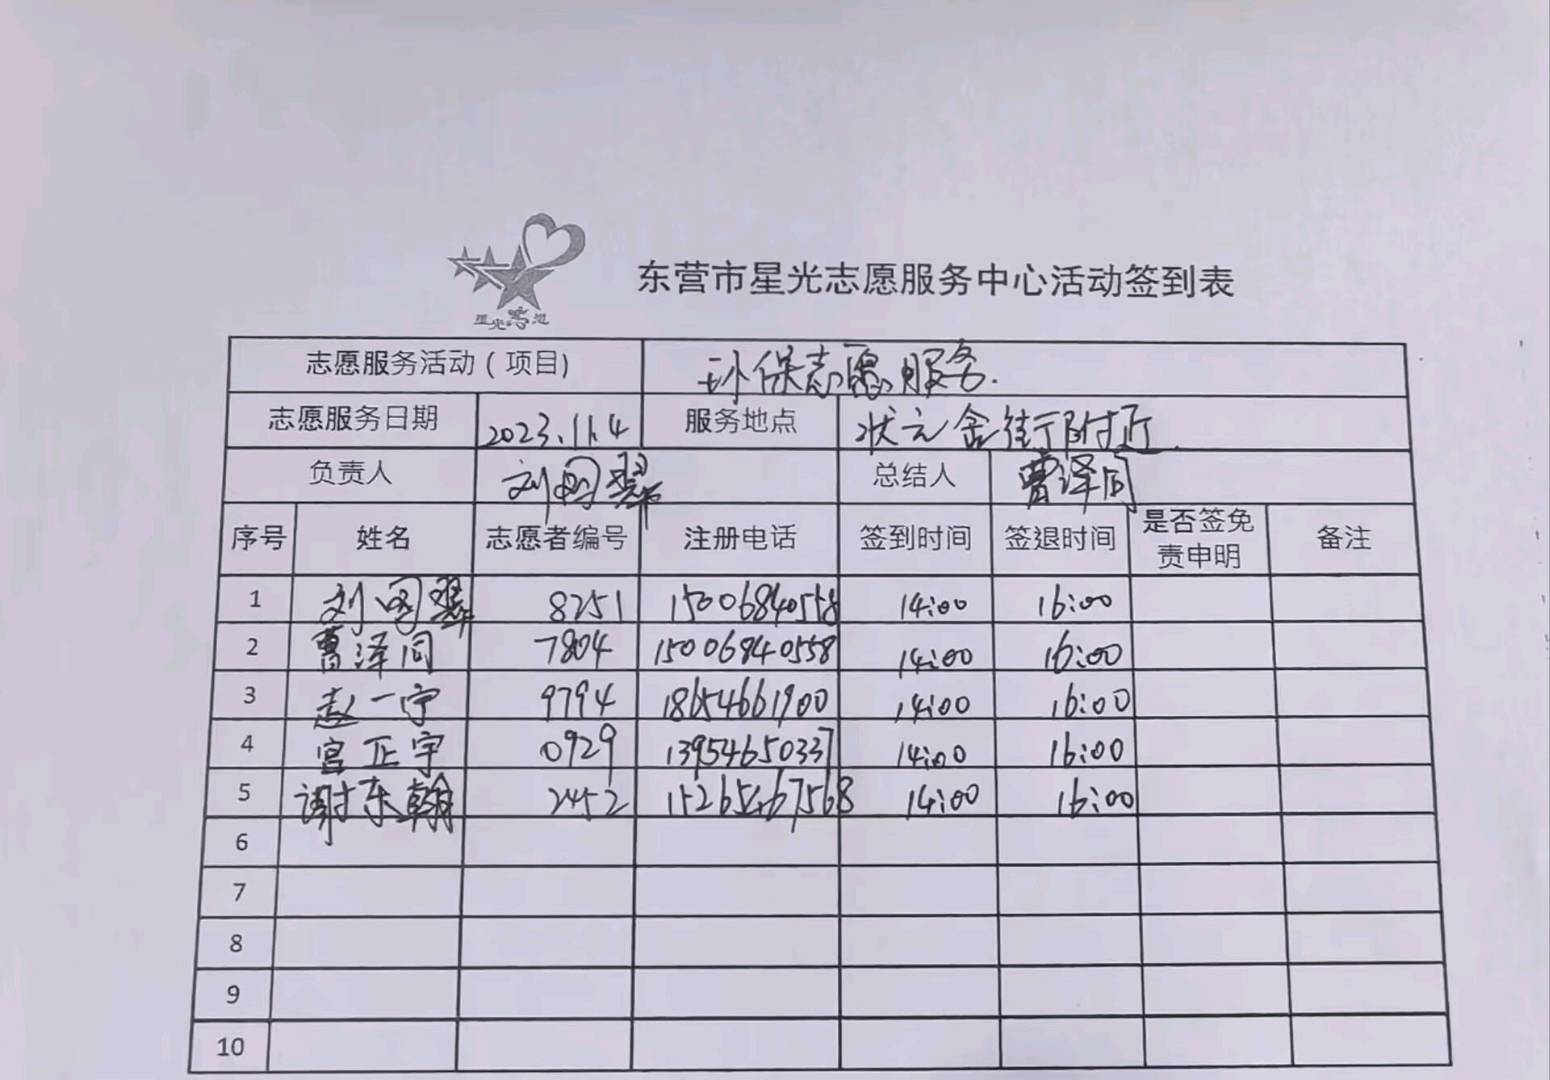 星光志愿
东营市星光志愿服务中心活动签到表
志愿服务活动（项目） 环保志愿服务.
志愿服务日期 2023.11.4 服务地点 状元舍街附近.
负责人 刘图翠 总结人 曹泽同
序号 姓名 志愿者编号 注册电话 签到时间 签退时间 是否签免责申明 备注
1 刘图翠 8251 15006840558 14:00 16:00
2 曹泽同 7804 15006840558 14:00 16:00
3 赵一宁 9794 18654661900 14:00 16:00
4 宫正宇 0929 13954650337 14:00 16:00
5 谢东翰 2452 15265467568 14:00 16:00
6
7
8
9
10